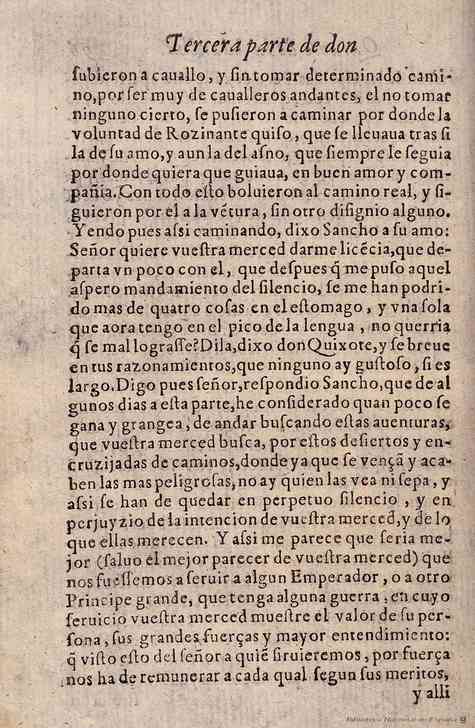 Tercera parte de don
ſubieron a cauallo, y ſin tomar determinado cami-
no, por ſer muy de caualleros andantes, el no tomar
ninguno cierto, ſe puſieron a caminar por donde la
voluntad de Rozinante quiſo, que ſe lleuaua tras ſi
la de ſu amo, y aun la del aſno, que ſiempre le ſeguia
por donde quiera que guiaua, en buen amor y com-
pañia. Con todo eſto boluieron al camino real, y ſi-
guieron por el a la vẽtura, ſin otro diſignio alguno.
Yendo pues aſsi caminando, dixo Sancho a ſu amo:
Señor quiere vueſtra merced darme licẽcia, que de-
parta vn poco con el, que deſpues q̃ me puſo aquel
aſpero mandamiento del ſilencio, ſe me han podri-
do mas de quatro coſas en el eſtomago, y vna ſola
que aora tengo en el pico de la lengua, no querria
q̃ ſe mal lograſſe? Dila, dixo don Quixote, y ſe breue
en tus razonamientos, que ninguno ay guſtoſo, ſi es
largo. Digo pues ſeñor, reſpondio Sancho, que de al
gunos dias a eſta parte, he conſiderado quan poco ſe
gana y grangea, de andar buſcando eſtas auenturas,
que vueſtra merced buſca, por eſtos deſiertos y en-
cruzijadas de caminos, donde ya que ſe vençã y aca-
ben las mas peligroſas, no ay quien las vea ni ſepa, y
aſsi ſe han de quedar en perpetuo ſilencio, y en
perjuyzio de la intencion de vueſtra merced, y de lo
que ellas merecen. Y aſsi me parece que ſeria me-
jor (ſaluo el mejor parecer de vueſtra merced) que
nos fueſſemos a ſeruir a algun Emperador, o a otro
Principe grande, que tenga alguna guerra, en cuyo
ſeruicio vueſtra merced mueſtre el valor de ſu per-
ſona, ſus grandes fuerças y mayor entendimiento:
q̃ viſto eſto del ſeñor a quiẽ ſiruieremos, por fuerça
nos ha de remunerar a cada qual ſegun ſus meritos,
y alli
Biblioteca Nacional de España